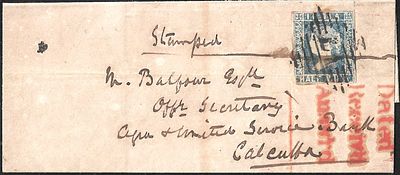 Stamped
M. Balfour Esqr
Offg Secretary
Agra & United Service Bank
Calcutta
HALF
Dated
Received